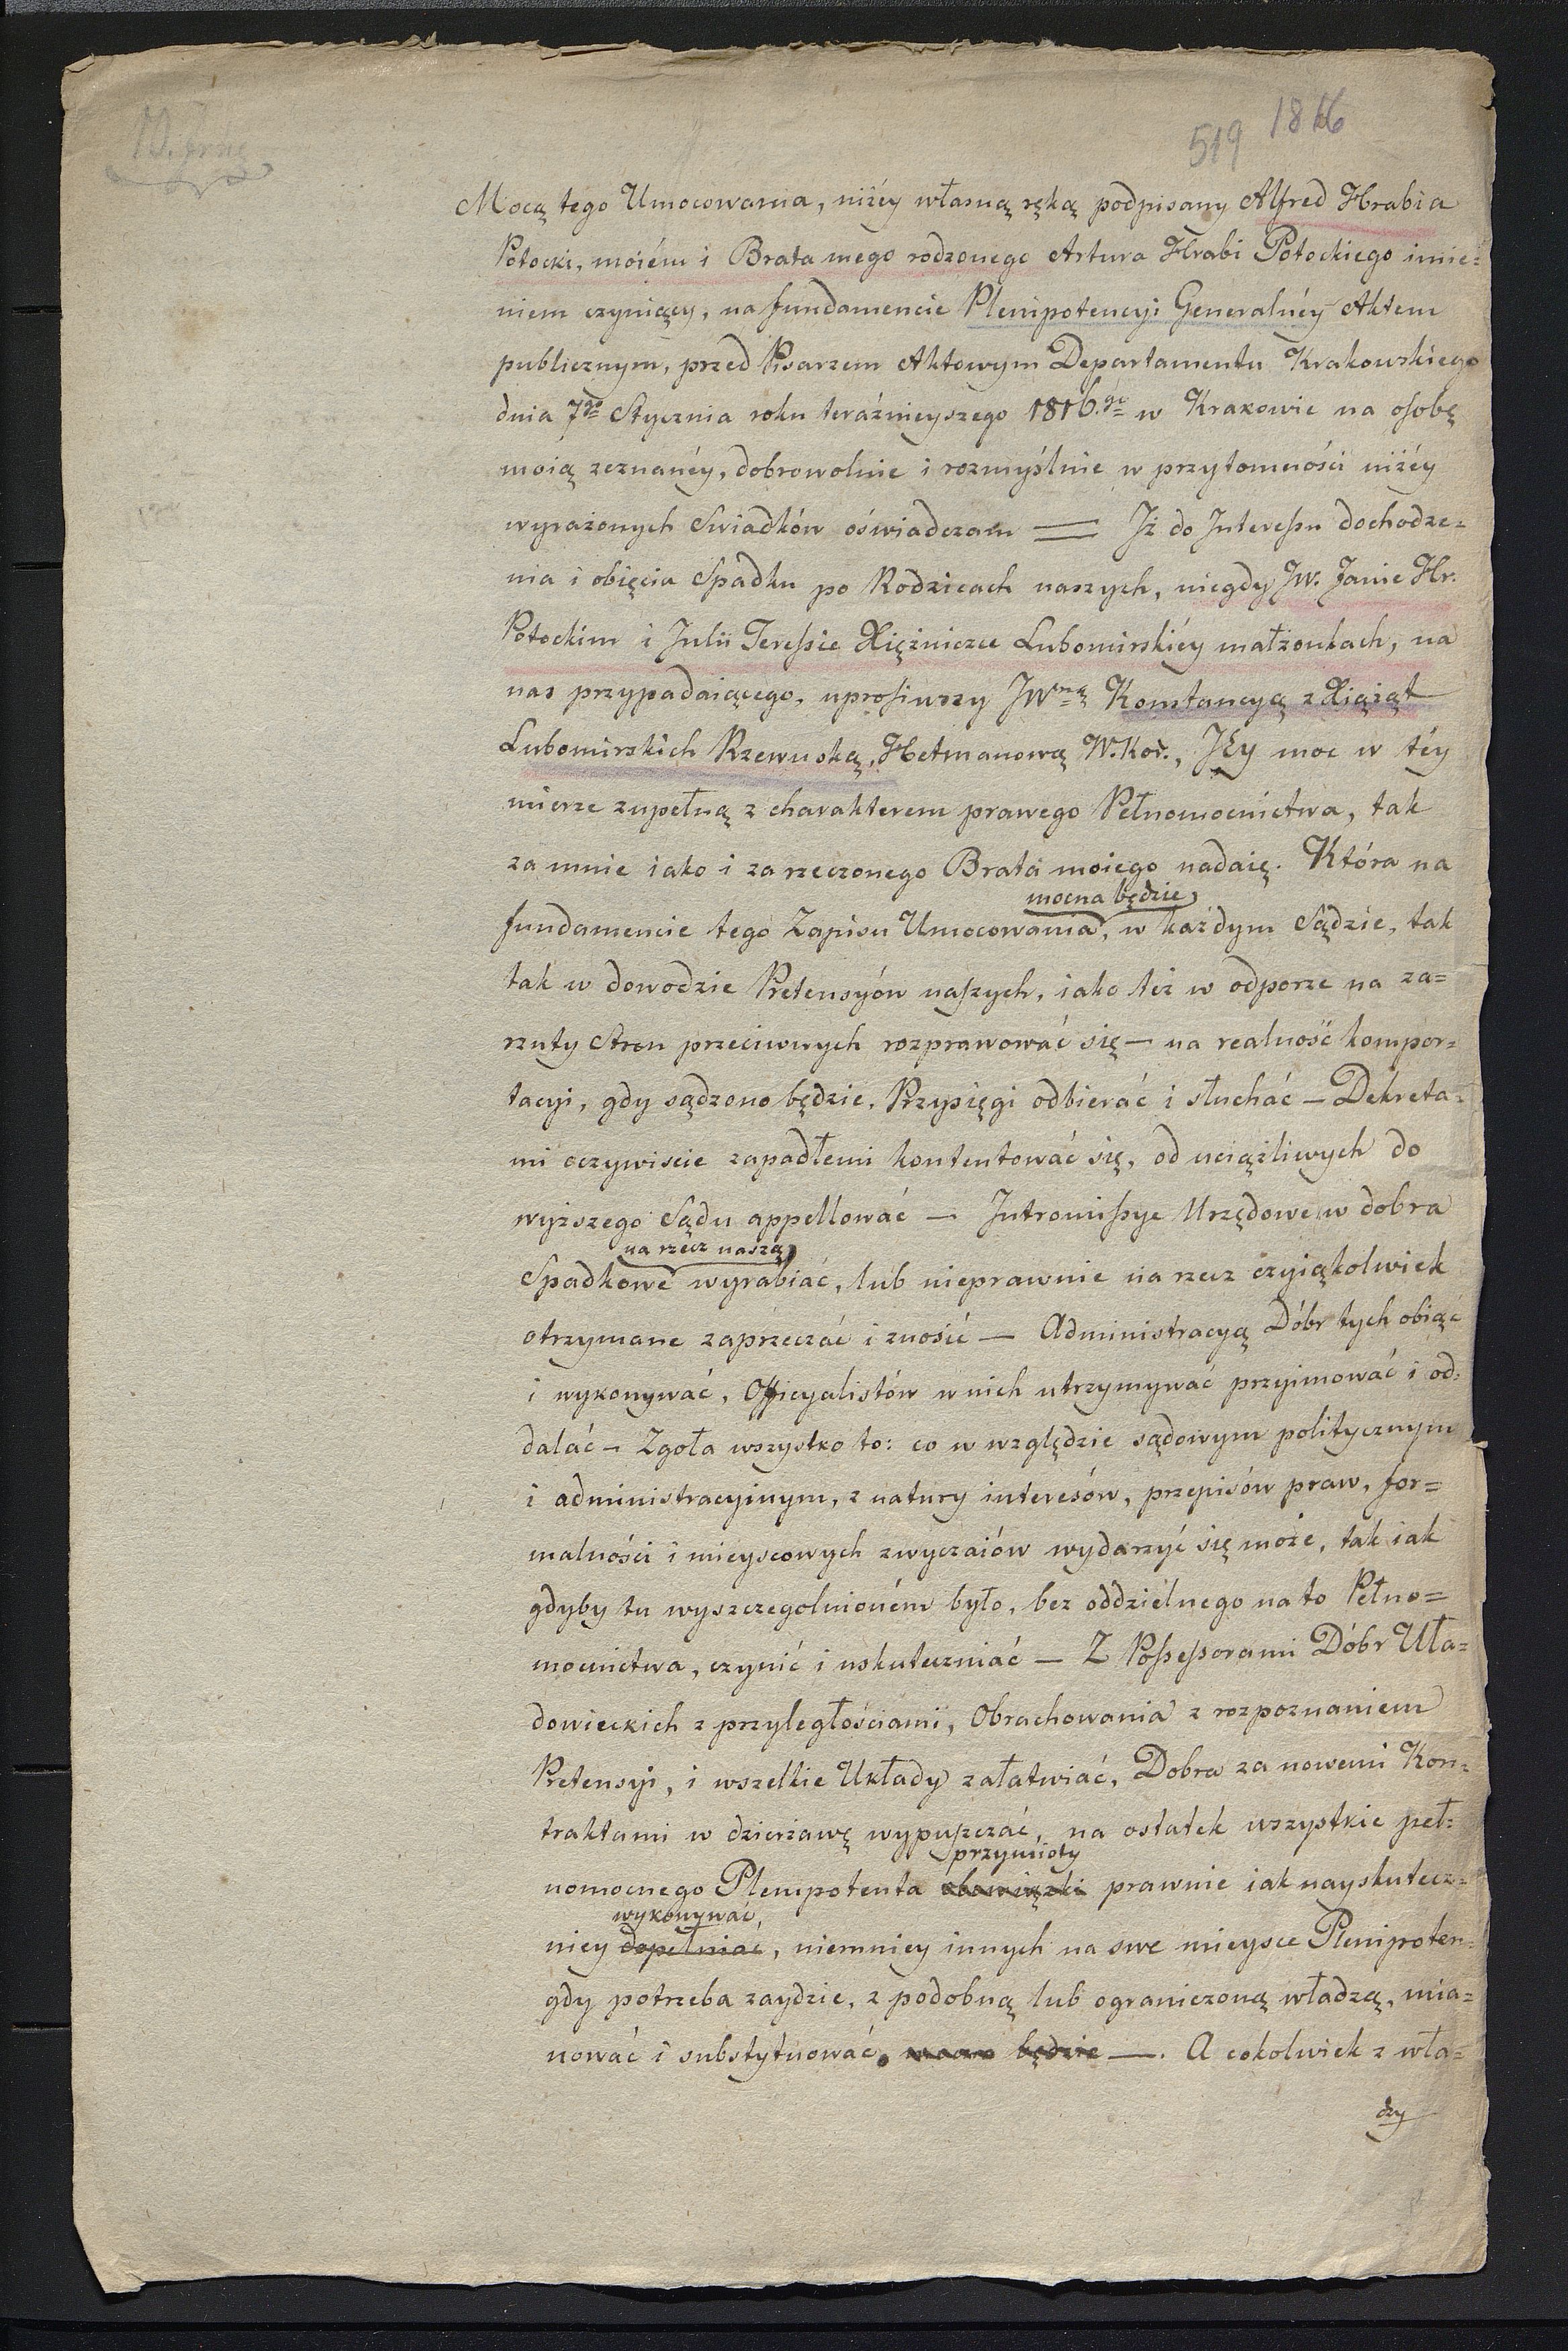 519 1816
Mocą tego Umocowania, niżéy własną ręką podpisany Alfred Hrabia
Potocki, moiém i Brata mego rodzonego Artura Hrabi Potockiego imie=
niem czyniący, na fundamencie Plenipotencyi Generalnéy Aktem
publicznym, przed Pisarzem Aktowym Departamentu Krakowskiego
dnia 7go Stycznia roku teraźnieyszego 1816.go w Krakowie na osobę
moią zeznanéy, dobrowolnie i rozmyślnie w przytomności niżéy
wyrażonych Swiadków oświadczam = Iż do Interessu dochodze=
nia i obięcia Spadku po Rodzicach naszych, niegdy JW. Janie Hr.
Potockim i Julii Teressie Xiężniczce Lubomirskiéy małżonkach, na
nas przypadaiącego, uprosiwszy JWną Konstancyą z Xiążąt
Lubomirskich Rzewuską, Hetmanową W. Kor., JEy moc w téy
mierze zupełną z charakterem prawego Pełnomocnictwa, tak
za mnie iako i za rzeczonego Brata moiego nadaię. Która na
mocna będzie
fundamencie tego Zapisu Umocowania, w każdym Sądzie, tak
tak w dowodzie Pretensyów naszych, iako też w odporze na za=
rzuty Stron przeciwnych rozprawować się — na realność kompor=
tacyi, gdy sądzono będzie, Przysięgi odbierać i słuchać — Dekreta=
mi oczywiscie zapadłemi kontentować się, od uciążliwych do
wyższego Sądu appellować — Intromissye Urzędowe w dobra
na rzecz naszą
Spadkowe wyrabiać, lub nieprawnie na rzecz czyiąkolwiek
otrzymane zaprzeczać i znosić — Administracyą Dóbr tych obiąć
i wykonywać, Officyalistów w nich utrzymywać przyimować i od=
dalać — Zgoła wszystko to: co w względzie sądowym politycznym
i administracyinym, z natury interesów, przepisów praw, for=
malności i mieyscowych zwyczaiów wydarzyć się może, tak iak
gdyby tu wyszczegolnioném było, bez oddzielnego na to Pełno=
mocnictwa, czynić i uskuteczniać — Z Possessorami Dóbr Uła=
dowieckich z przyległościami, Obrachowania z rozpoznaniem
Pretensyi, i wszelkie Układy załatwiać, Dobra za nowemi Kon=
traktami w dzierżawę wypuszczać, na ostatek wszystkie peł=
przymioty
nomocnego Plenipotenta obowiązki prawnie iak nayskutecz=
wykonywać,
niey dopełniać, niemniey innych na swe mieysce Plenipoten=
gdy potrzeba zaydzie, z podobną lub ograniczoną władzą, mia=
nować i substytuować, mocna będzie —. A cokolwiek z wła=
dzy